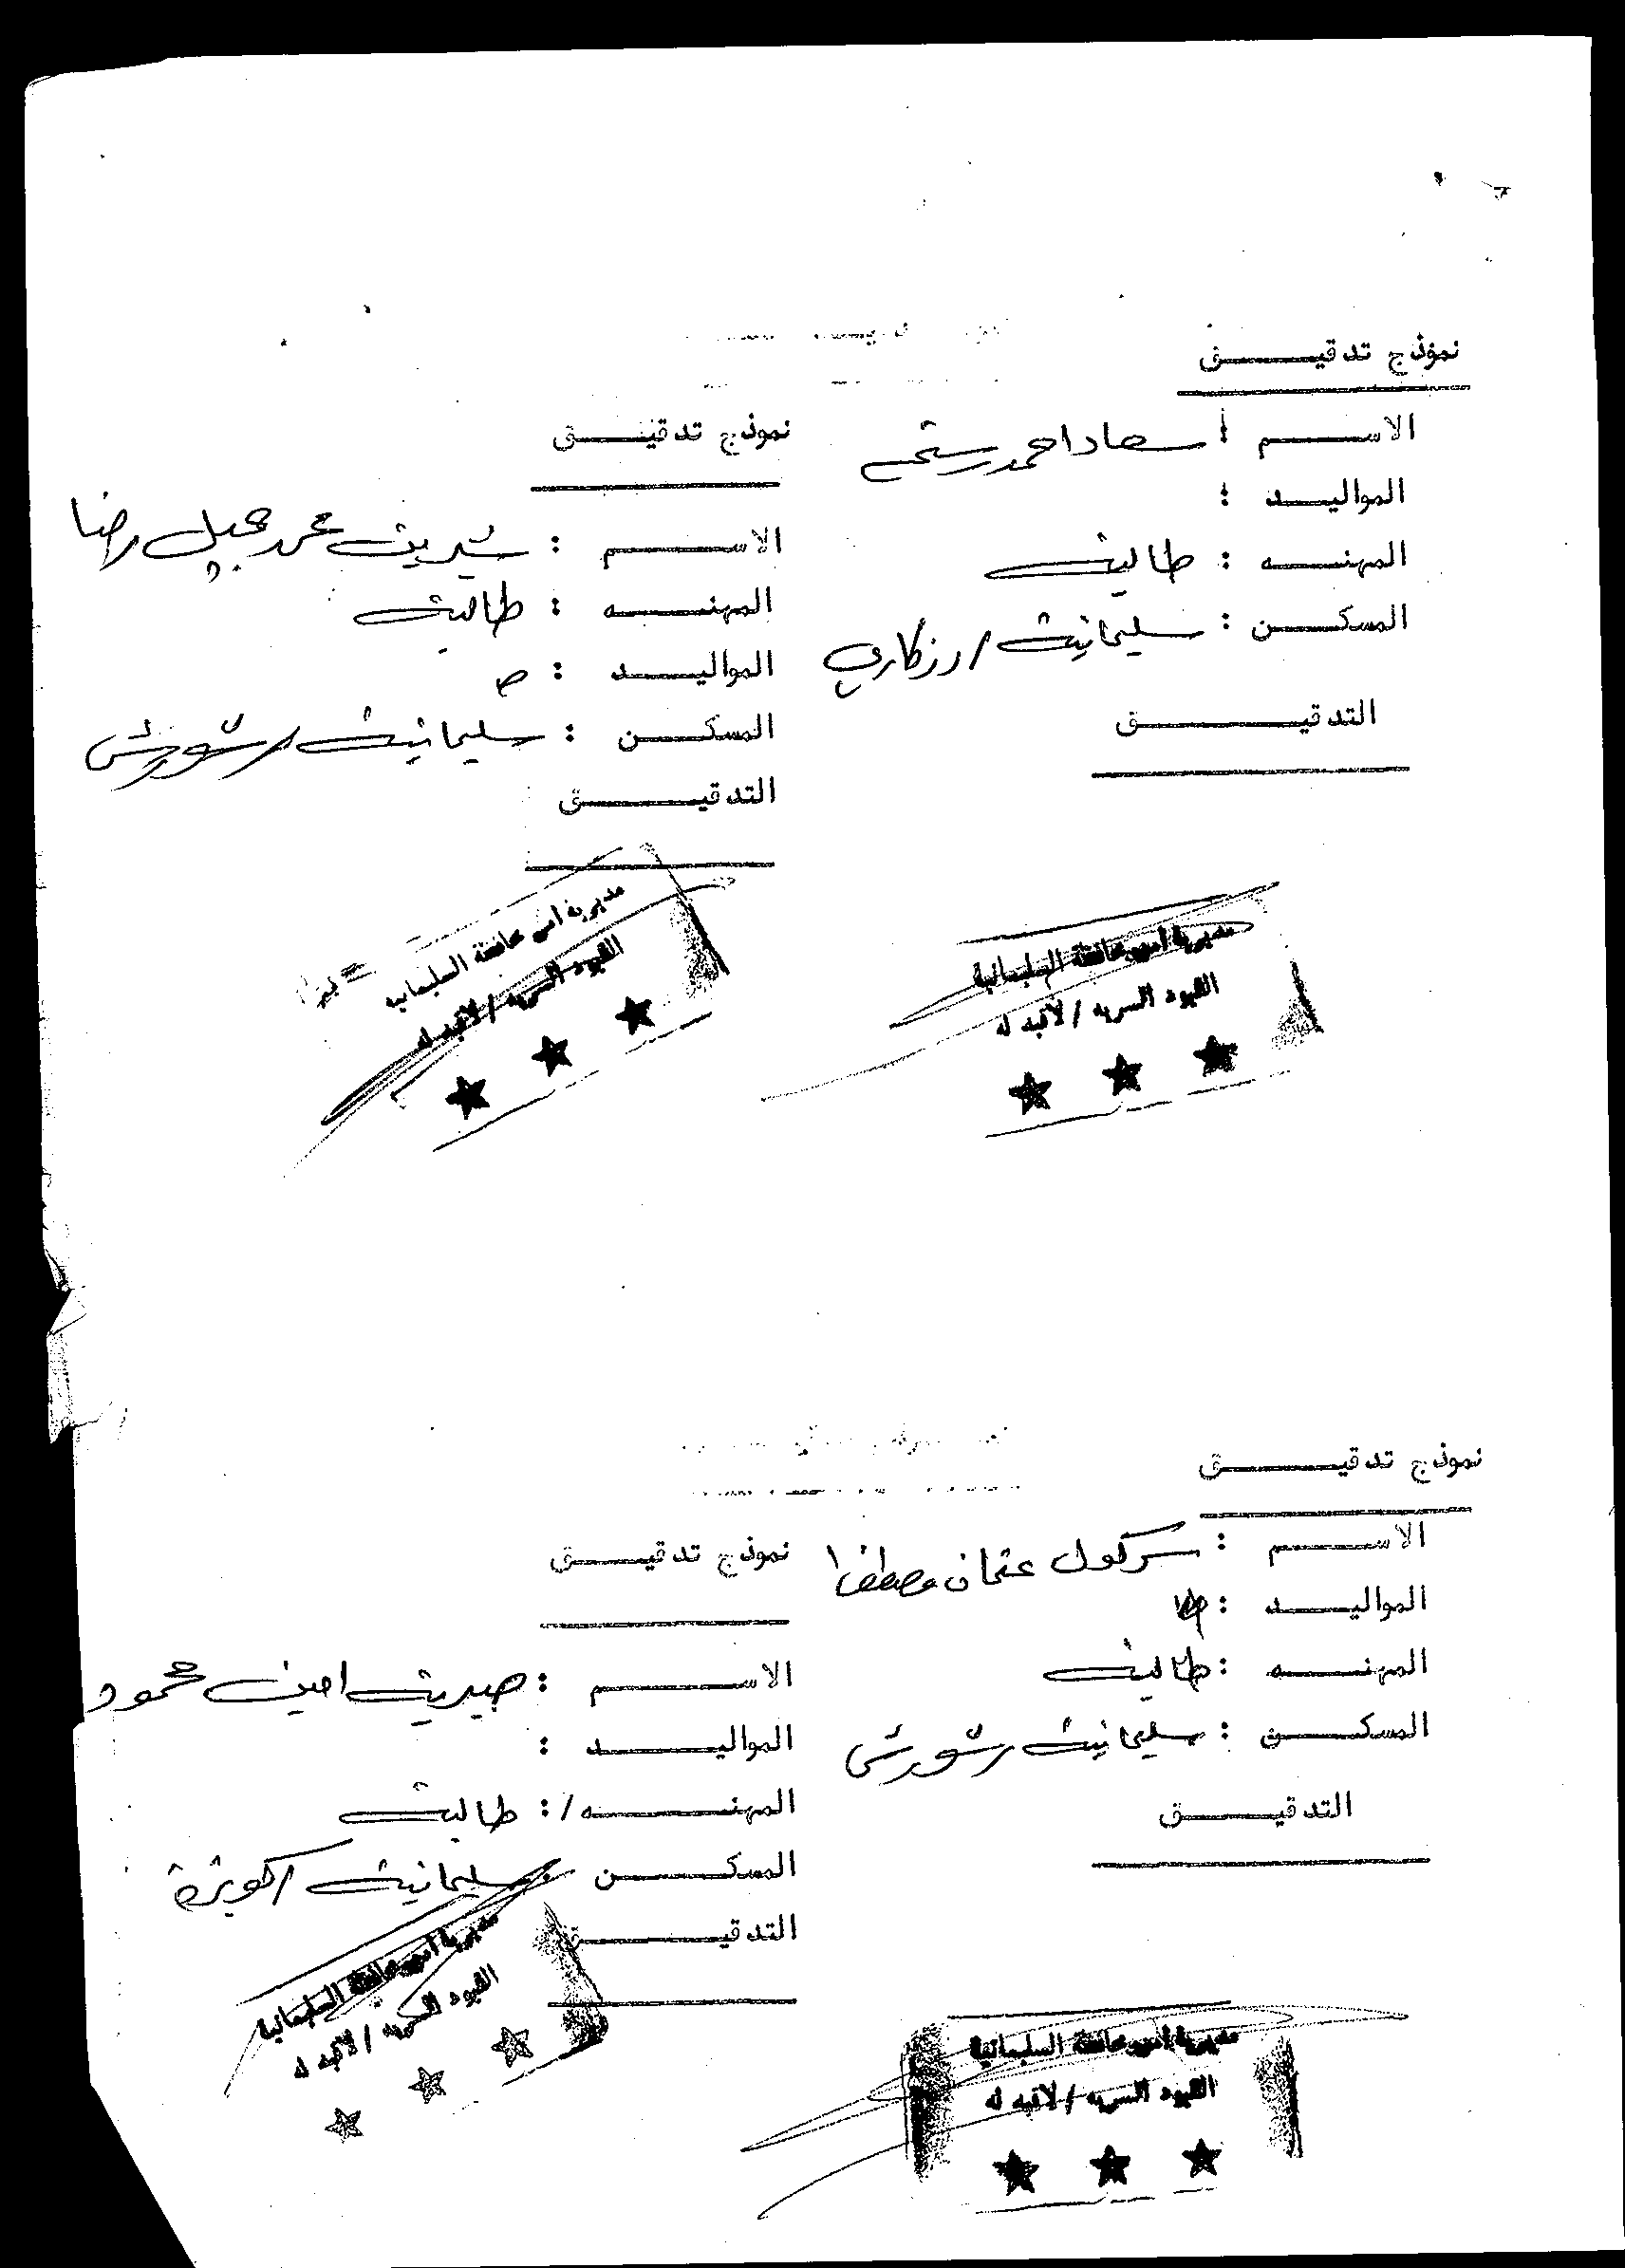 نموذج تدقيـــــق
الاســـــم : سعاد احمد رستم
المواليــد :
المهنـــه : طالبة
المسكـــن : سليمانية / رزكاري
التدقيـــــق
مديرية امن محافظة السليمانية
القيود السريه / لاقيد له
نموذج تدقيـــــق
الاســـــم : شيرين محمد جميل رضا
المهنـــه : طالبة
المواليــد :
المسكـــن : سليمانية / شورش
التدقيـــــق
مديرية امن محافظة السليمانية
القيود السريه / لاقيد له
نموذج تدقيـــــق
الاســـــم : سركول عثمان مصطفى
المواليــد :
المهنـــه : طالبة
المسكـــن : سليمانية / شورش
التدقيـــــق
مديرية امن محافظة السليمانية
القيود السريه / لاقيد له
نموذج تدقيـــــق
الاســـــم : صبرية امين محمود
المواليــد :
المهنـــه / : طالبة
المسكـــن سليمانية /
التدقيـــــق
مديرية امن محافظة السليمانية
القيود السريه / لاقيد له